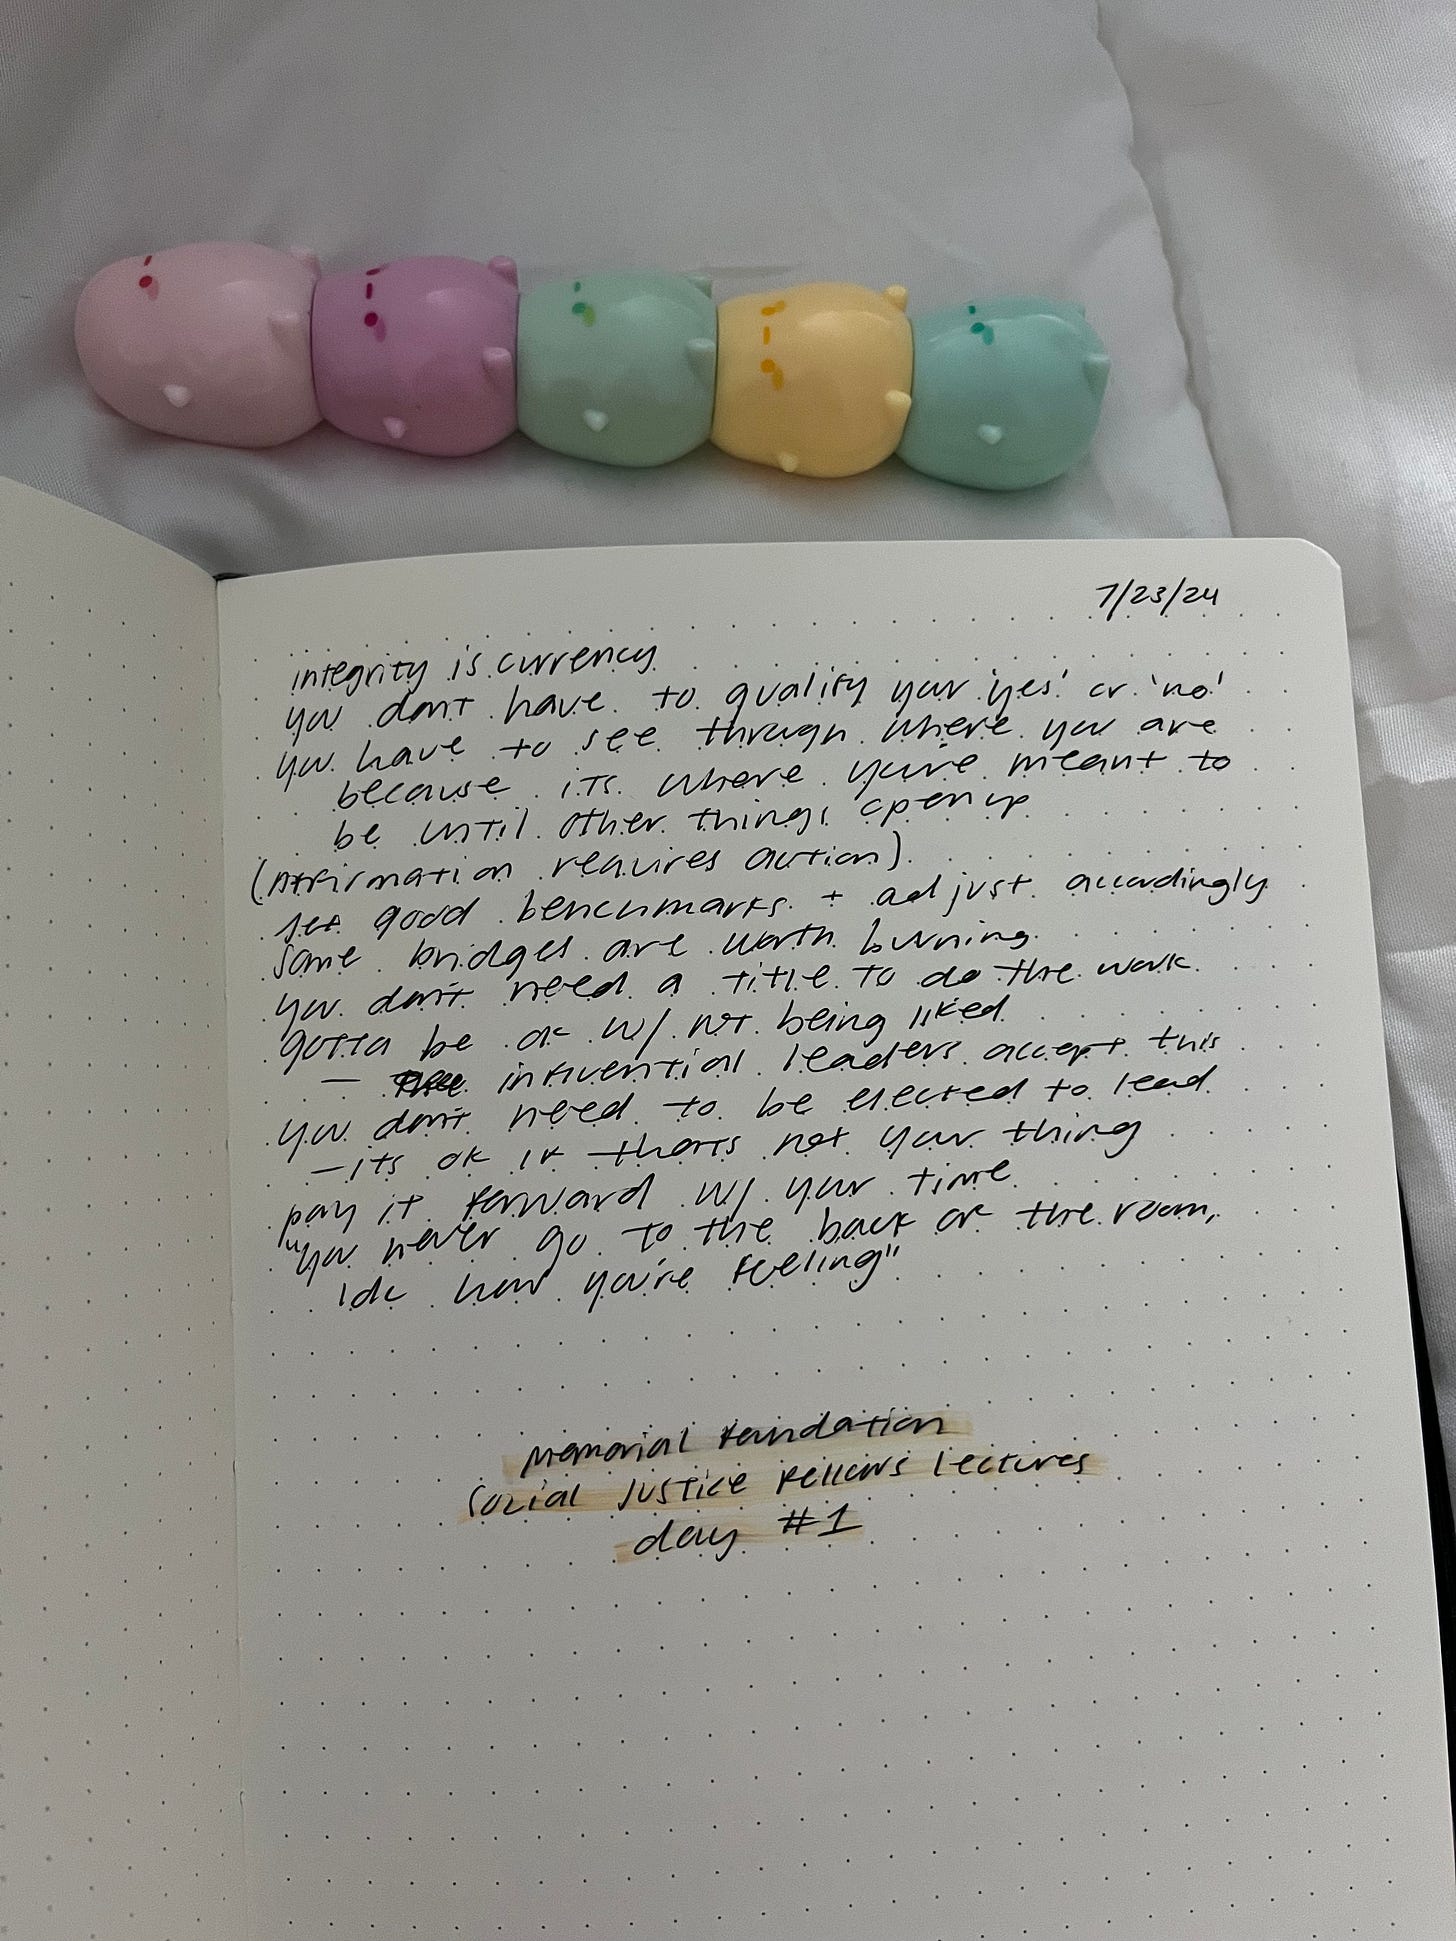 7/23/24
integrity is currency
you don't have to qualify your 'yes' or 'no'
you have to see through where you are
because its where you're meant to
be until other things open up
(Affirmation requires action)
set good benchmarks + adjust accordingly
some bridges are worth burning
you don't need a title to do the work
gotta be ok w/ not being liked
— influential leaders accept this
you don't need to be elected to lead
— its ok if thats not your thing
pay it forward w/ your time
"you never go to the back of the room,
idc how you're feeling"
Memorial Foundation
Social Justice Fellows Lectures
day #1